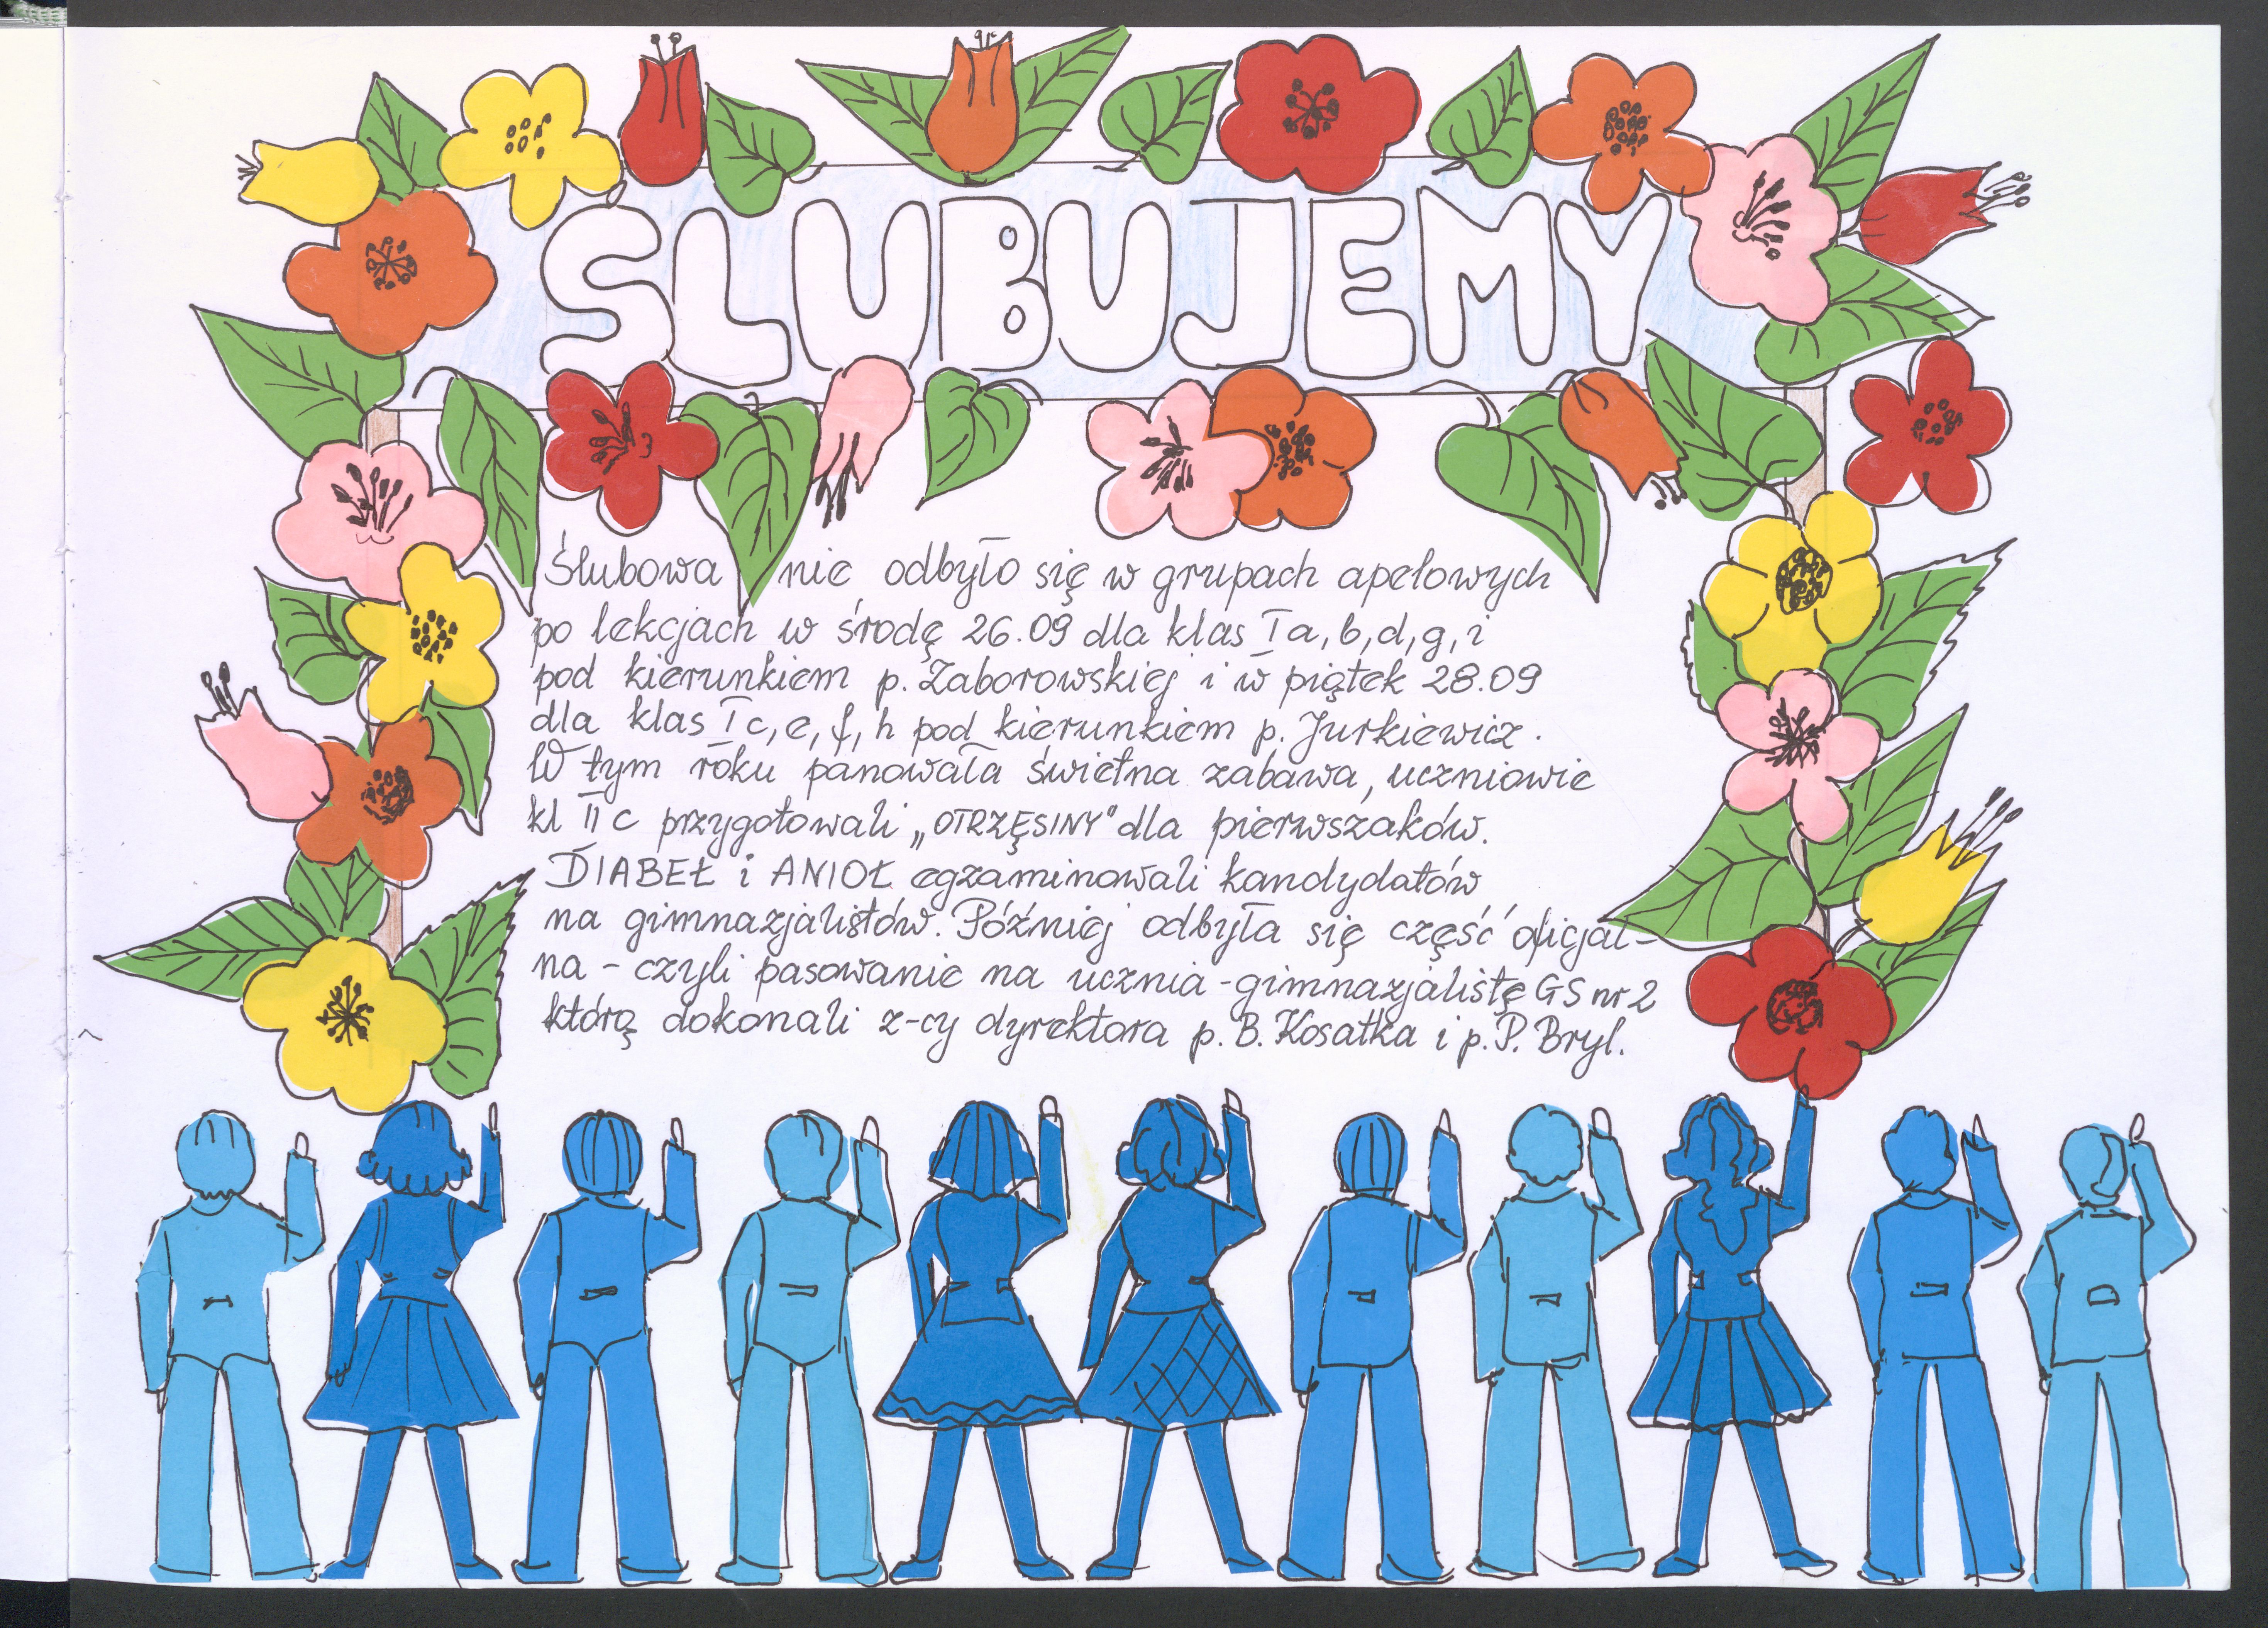 ŚLUBUJEMY
Ślubowanie odbyło się w grupach apelowych
po lekcjach w środę 26.09 dla klas I a, b, d, g, i
pod kierunkiem p. Zaborowskiej i w piątek 28.09
dla klas I c, e, f, h pod kierunkiem p. Jurkiewicz.
W tym roku panowała świetna zabawa, uczniowie
kl II c przygotowali „OTRZĘSINY" dla pierwszaków.
DIABEŁ i ANIOŁ egzaminowali kandydatów
na gimnazjalistów. Później odbyła się część oficjal-
na - czyli pasowanie na ucznia - gimnazjalistę GS nr 2
którą dokonali z-cy dyrektora p. B. Kosatka i p. P. Bryl.